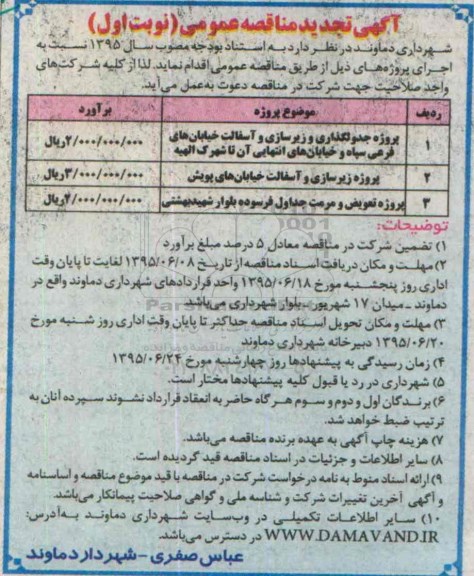 آگهی تجدید مناقصه عمومی (نوبت اول)
شهرداری دماوند در نظر دارد به استناد بودجه مصوب سال ۱۳۹۵ نسبت به
اجرای پروژه‌های ذیل از طریق مناقصه عمومی اقدام نماید. لذا از کلیه شرکت‌های
واجد صلاحیت جهت شرکت در مناقصه دعوت به عمل می‌آید.
ردیف موضوع پروژه برآورد
۱ پروژه جدولگذاری و زیرسازی و آسفالت خیابان‌های
فرعی سپاه و خیابان‌های انتهایی آن تا شهرک الهیه ۲/۰۰۰/۰۰۰/۰۰۰ریال
۲ پروژه زیرسازی و آسفالت خیابان‌های پویش ۳/۰۰۰/۰۰۰/۰۰۰ریال
۳ پروژه تعویض و مرمت جداول فرسوده بلوار شهیدبهشتی ۲/۰۰۰/۰۰۰/۰۰۰ریال
توضیحات:
۱) تضمین شرکت در مناقصه معادل ۵ درصد مبلغ برآورد
۲) مهلت و مکان دریافت اسناد مناقصه از تاریخ ۱۳۹۵/۰۶/۰۸ لغایت تا پایان وقت
اداری روز پنجشنبه مورخ ۱۳۹۵/۰۶/۱۸ واحد قراردادهای شهرداری دماوند واقع در
دماوند ـ میدان ۱۷ شهریور ـ بلوار شهرداری می‌باشد.
۳) مهلت و مکان تحویل اسناد مناقصه حداکثر تا پایان وقت اداری روز شنبه مورخ
۱۳۹۵/۰۶/۲۰ دبیرخانه شهرداری دماوند
۴) زمان رسیدگی به پیشنهادها روز چهارشنبه مورخ ۱۳۹۵/۰۶/۲۴
۵) شهرداری در رد یا قبول کلیه پیشنهادها مختار است.
۶) برندگان اول و دوم و سوم هرگاه حاضر به انعقاد قرارداد نشوند سپرده آنان به
ترتیب ضبط خواهد شد.
۷) هزینه چاپ آگهی به عهده برنده مناقصه می‌باشد.
۸) سایر اطلاعات و جزئیات در اسناد مناقصه قید گردیده است.
۹) ارائه اسناد منوط به نامه درخواست شرکت در مناقصه با قید موضوع مناقصه و اساسنامه
و آگهی آخرین تغییرات شرکت و شناسه ملی و گواهی صلاحیت پیمانکار می‌باشد.
۱۰) سایر اطلاعات تکمیلی در وب‌سایت شهرداری دماوند به آدرس:
WWW.DAMAVAND.IR در دسترس می‌باشد.
عباس صفری - شهردار دماوند